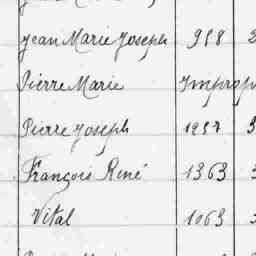 Jean Marie Joseph 958 2
Pierre Marie Improp
Pierre Joseph 1257 3
François René 1363
Vital 1063